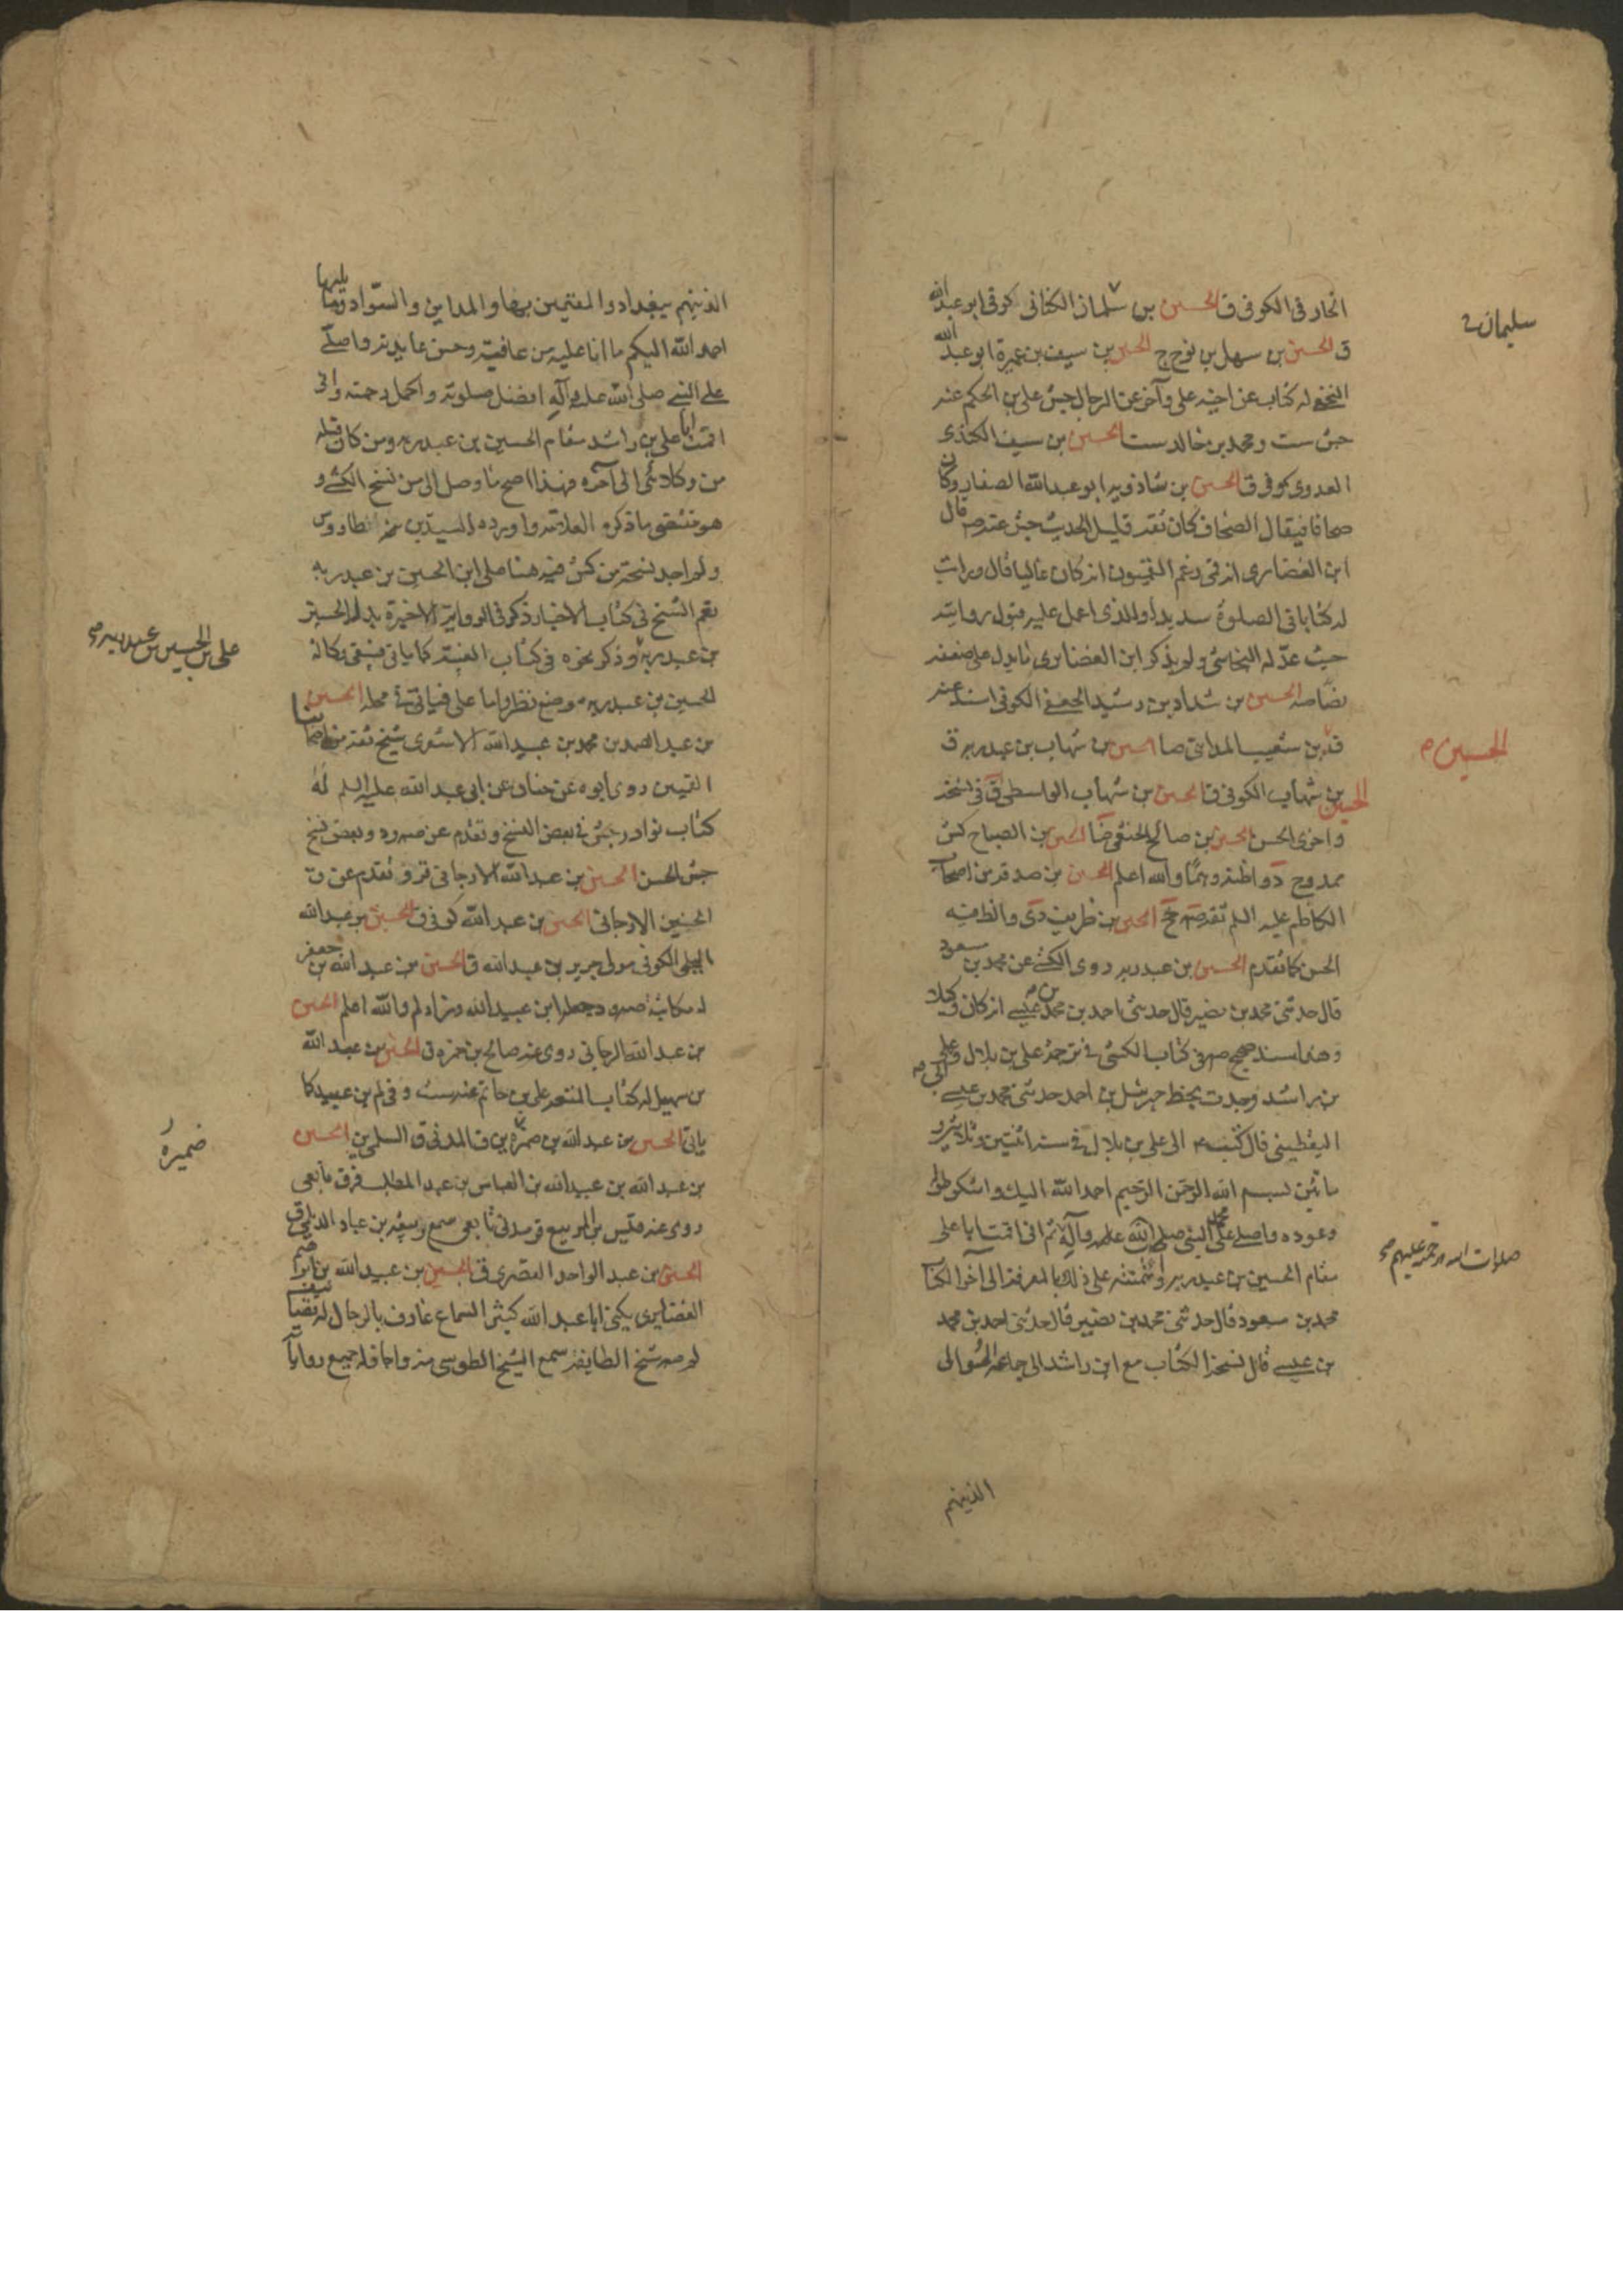 الحارثى الكوفى ق الحسين بن سلمان الكنانى كوفى ابو عبدالله
سليمان
ق الحسين بن سهل بن نوح ج الحسين بن سيف بن عميرة ابو عبدالله
النخعى له كتاب عن اخيه على وآخر عن الرجال جش على بن الحكم عنه
جش ست ومحمد بن خالد ست الحسين بن سيف الكندى
العدوى كوفى ق الحسين بن شاذويه ابو عبدالله الصفار وكان
صحافا فيقال الصحاف كان ثقة قليل الحديث جش عنه صه قال
ابن الغضايرى انه قمى زعم القميون انه كان غاليا قال ورايت
له كتابا فى الصلوة سديدا والذى اعمل عليه قبول روايته
حيث عدله النجاشى ولم يذكر ابن الغضايرى ما يدل على ضعفه
نصا صه الحسين بن شداد بن رشيد الجعفى الكوفى اسند عنه
ق بن شعيب المداينى ضا الحسين بن شهاب بن عبد ربه ق
الحسين
الحسين بن شهاب الكوفى ق الحسين بن شهاب الواسطى ق فى نسخة
واخرى الحسن الحسين بن صالح الخثعمى ضا الحسين بن الصباح كش
ممدوح د واظنه وهما والله اعلم الحسين بن صدقة من اصحاب
الكاظم عليه السلم ثقة صه جخ الحسين بن ظريف دى واظنه
الحسن كما تقدم الحسين بن عبد ربه روى الكشى عن محمد بن مسعود
قال حدثنى محمد بن نصير قال حدثنى احمد بن محمد بن عيسى انه كان وكيلا
وهذا سند صحيح صه وفى كتاب الكشى فى ترجمة على بن بلال وابى على
بن راشد وجدت بخط جبرئيل بن احمد حدثنى محمد بن عيسى
اليقطينى قال كتب الى على بن بلال فى سنة اثنتين وثلاثين و
مائتين بسم الله الرحمن الرحيم احمد الله اليك واشكر طوله
وعوده واصلى على محمد النبى صلى الله عليه وآله ثم انى اقمت ابا على
صلوات الله ورحمته عليهم
مقام الحسين بن عبد ربه وائتمنته على ذلك بالمعرفة الى آخر الكتاب
محمد بن مسعود قال حدثنى محمد بن نصير قال حدثنى احمد بن محمد
بن عيسى قال نسخة الكتاب مع ابن راشد الى جماعة الموالى
الذينهم
الذينهم ببغداد والمقيمين بها والمداين والسواد وما يليها
احمد الله اليكم ما انا عليه من عافيته وحسن عايدته واصلى
على النبى صلى الله عليه وآله افضل صلوته واكمل رحمته وانى
اقمت ابا على بن راشد مقام الحسين بن عبد ربه ومن كان قبله
من وكلائى الى آخره فهذا اصح ما وصل الى من نسخ الكشى و
هو مقتضى ما ذكره العلامة واورده السيد بن طاووس
ولم اجد نسخة من كش فيه هنا على ابن الحسين بن عبد ربه
نعم الشيخ فى كتاب الاختيار ذكر فى الرواية الاخيرة بدل الحسين
على بن الحسين بن عبد ربه
بن عبد ربه وذكر نحوه فى كتاب الغيبة كما ياتى فبقى وكالة
الحسين بن عبد ربه موضع نظر واما على فياتى فى محله الحسين
بن عبد الصمد بن محمد بن عبيد الله الاشعرى شيخ ثقة من اصحابنا
القميين روى ابوه عن حنان عن ابى عبد الله عليه السلم له
كتاب نوادر جش فى بعض النسخ وتقدم عن صه ود وبعض نسخ
جش الحسن الحسين بن عبد الله الارجانى قر وتقدم عن ق
الحسين الارجانى الحسين بن عبد الله كوفى ق الحسين بن عبد الله
البجلى الكوفى مولى جرير بن عبد الله ق الحسين بن عبد الله بن جعفر
له مكاتبة صه ود وجعله ابن عبيد الله وزاد لم والله اعلم الحسين
بن عبد الله الرجانى روى عنه صالح بن حمزة ق الحسين بن عبد الله
بن سهيل له كتاب المتعة على بن حاتم عنه ست وفى لم بن عبيد كما
ياتى الحسين بن عبد الله بن ضمرة بن ق المدنى ق السلمى الحسين
ضميرة
بن عبد الله بن عبيد الله بن العباس بن عبد المطلب قر ق تابعى
روى عنه قيس بن الربيع قر مدنى تابعى سمع ربيعة بن عباد الديلى ق
الحسين بن عبد الواحد القصرى ق الحسين بن عبيد الله بن ابراهيم
الغضايرى يكنى ابا عبد الله كثير السماع عارف بالرجال له تصانيف
لم صه شيخ الطايفة سمع الشيخ الطوسى منه واجاز له جميع رواياته